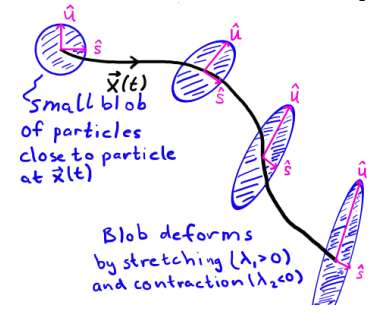 û
ŝ
x⃗(t)
small blob
of particles
close to particle
at x⃗(t)
û
ŝ
û
ŝ
û
ŝ
Blob deforms
by stretching (λ₁>0)
and contraction (λ₂<0)